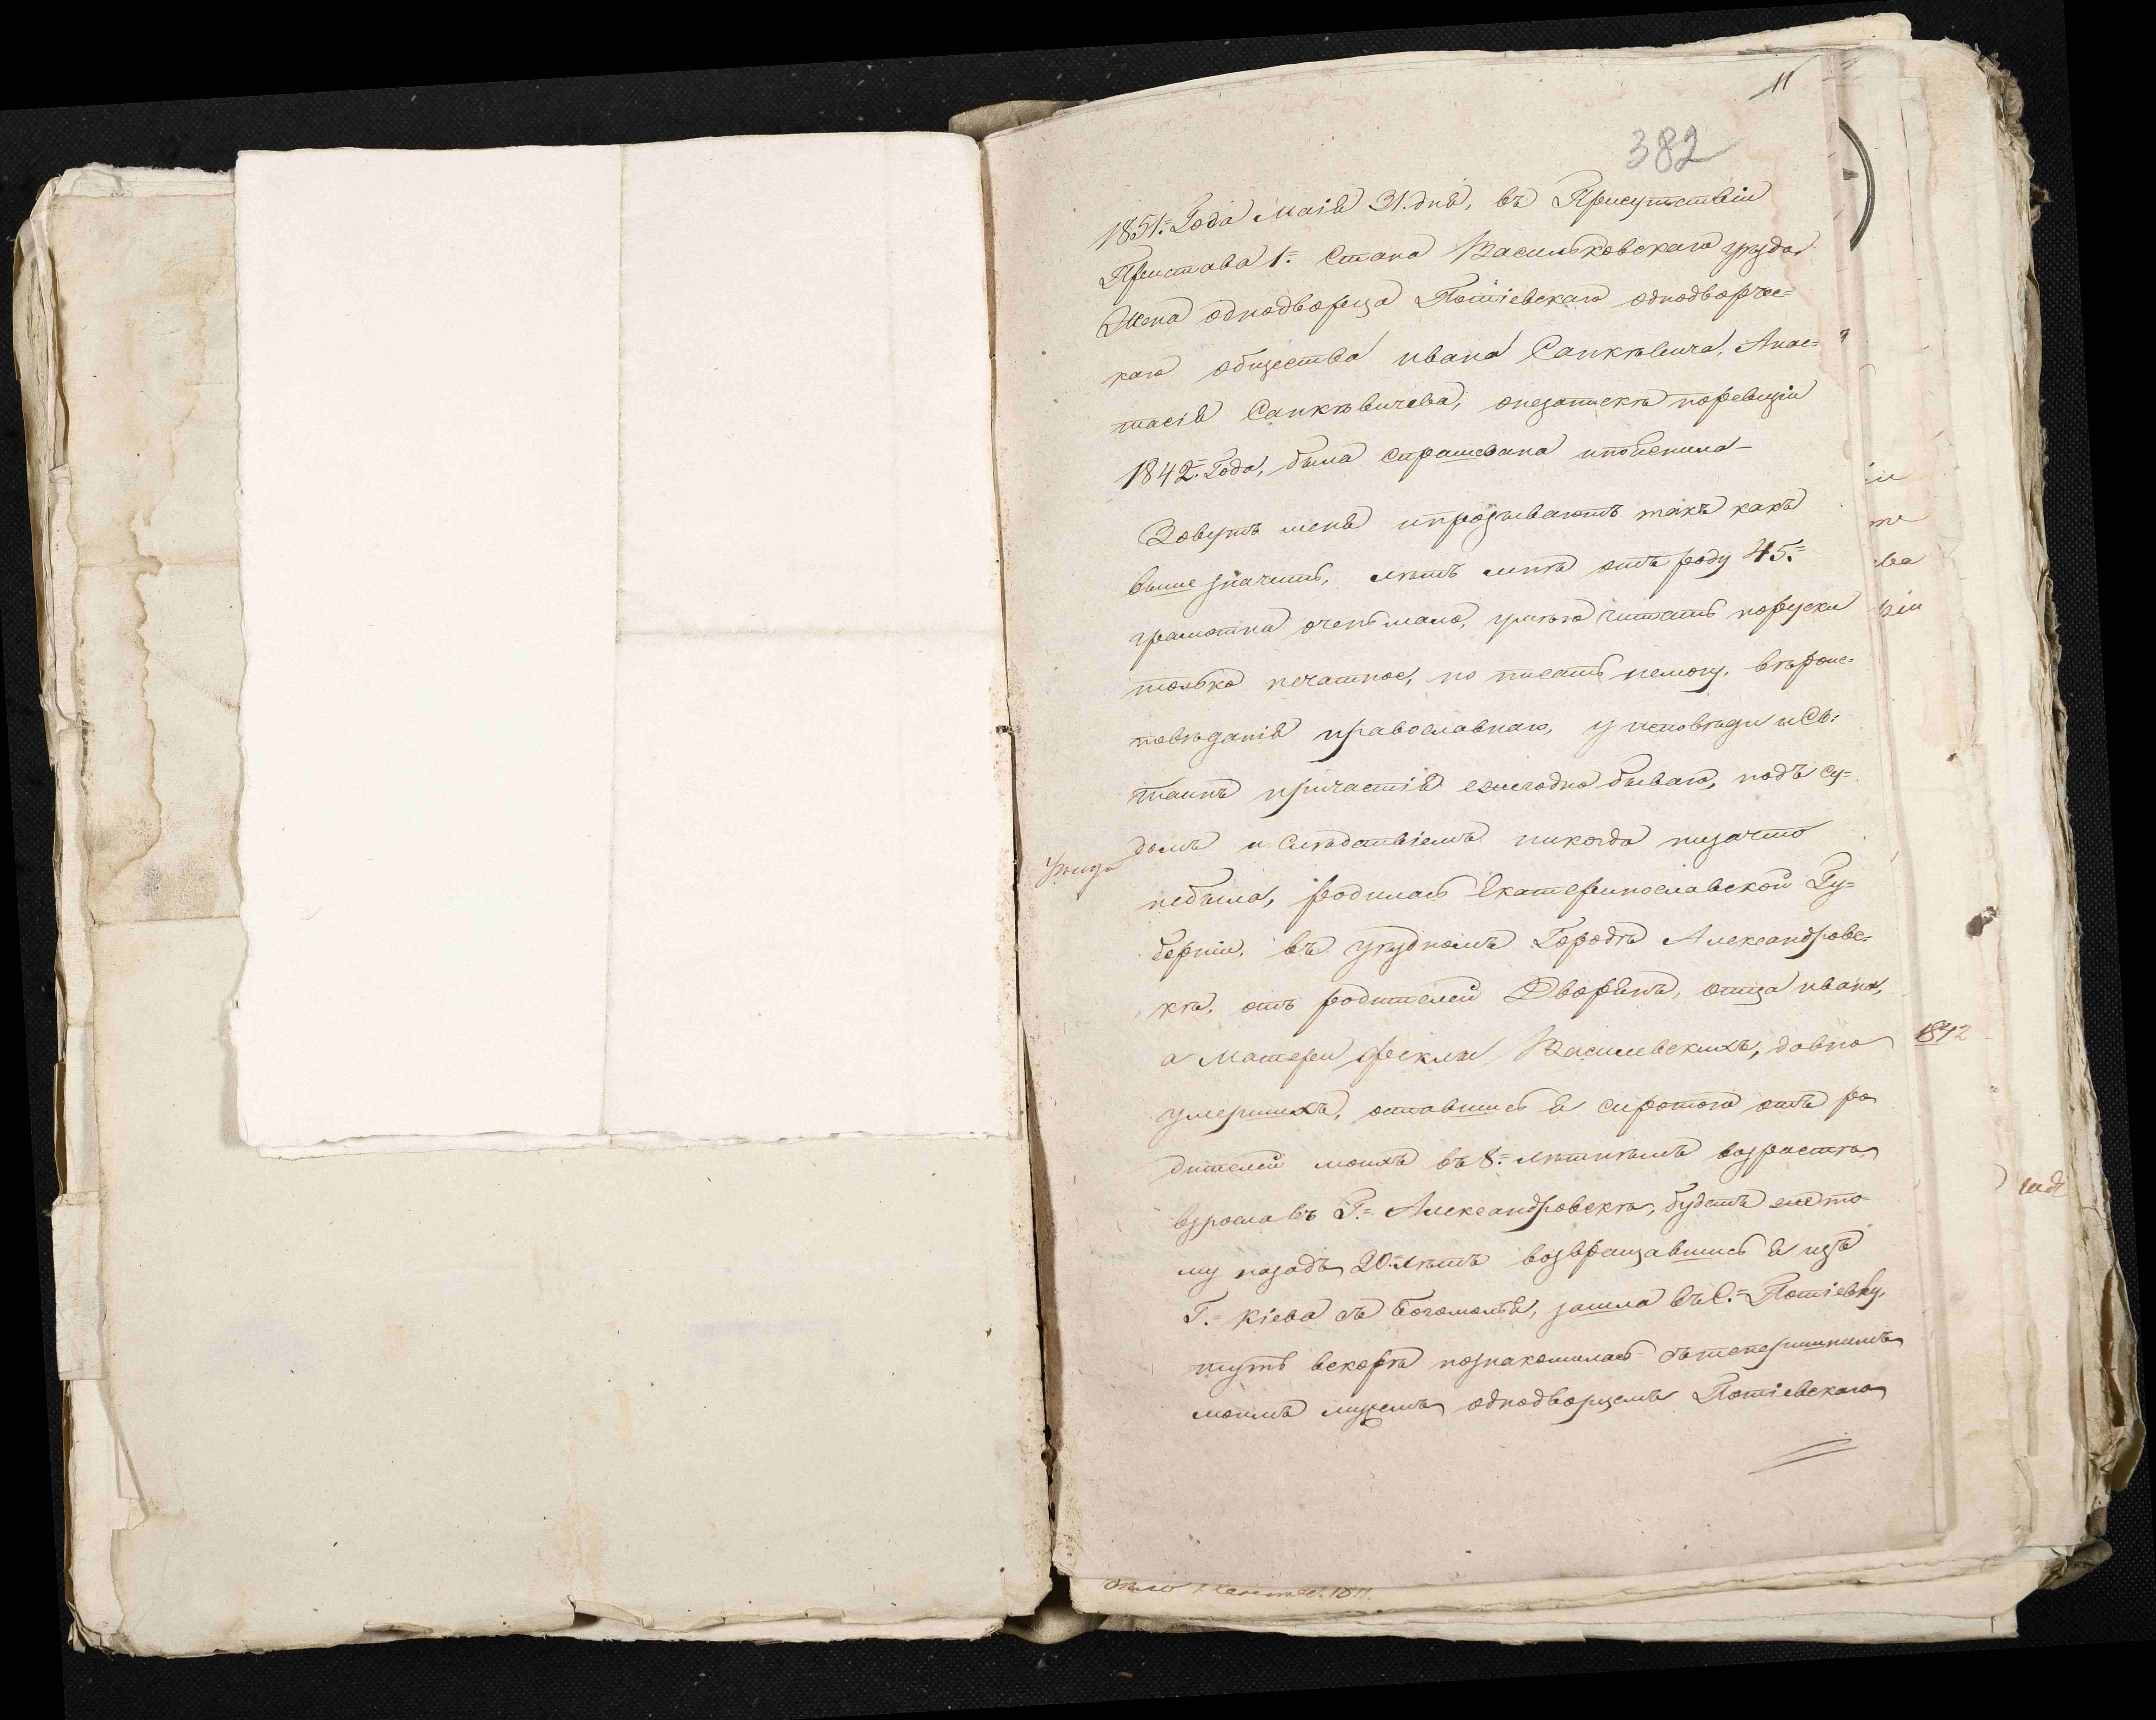 11
382
1851.= Года Маія 31. дня, въ Присутствіи
Пристава 1.= Стана Васильковскаго уѣзда
Жена однодворца Потіевскаго однодворче=
каго общества ивана Санкѣвича, Анас=
тасія Санкѣвичева, онезапискѣ поревизіи
1842.= Года, была спрашевана ипоясnила –
Зовутъ меня ипрозываютъ такъ какъ
выше значитъ, лѣтъ мнѣ отъ роду 45.=
грамотна очень мало, умѣю читать поруски
только печатное, но писать немогу, вѣроис=
повѣданія православнаго, у исповѣди иСв:
таинъ причастія ежегодно бываю, подъ су=
домъ и слѣдствіемъ никогда низачто
небыла, родилась Екатеринославской Гу=
берніи, въ уѣздномъ Городѣ Александровс=
кѣ, отъ родителей Дворянъ, отца ивана,
а матери феклы Василевскихъ, давно
умершихъ, оставшись я сиротою отъ ро
дителей моихъ въ 8.= лѣтнѣмъ возрастѣ,
взросла въ Г.= Александровскѣ, будетъ ежето=
му назадъ 20.= лѣтъ возвращавшись я изъ
Г.= Кіева съ богомолья, зашла въ С.= Потіевку,
тутъ вскорѣ познакомилась степеришнимъ
моимъ мужемъ однодворцемъ Потіевскаго
1842